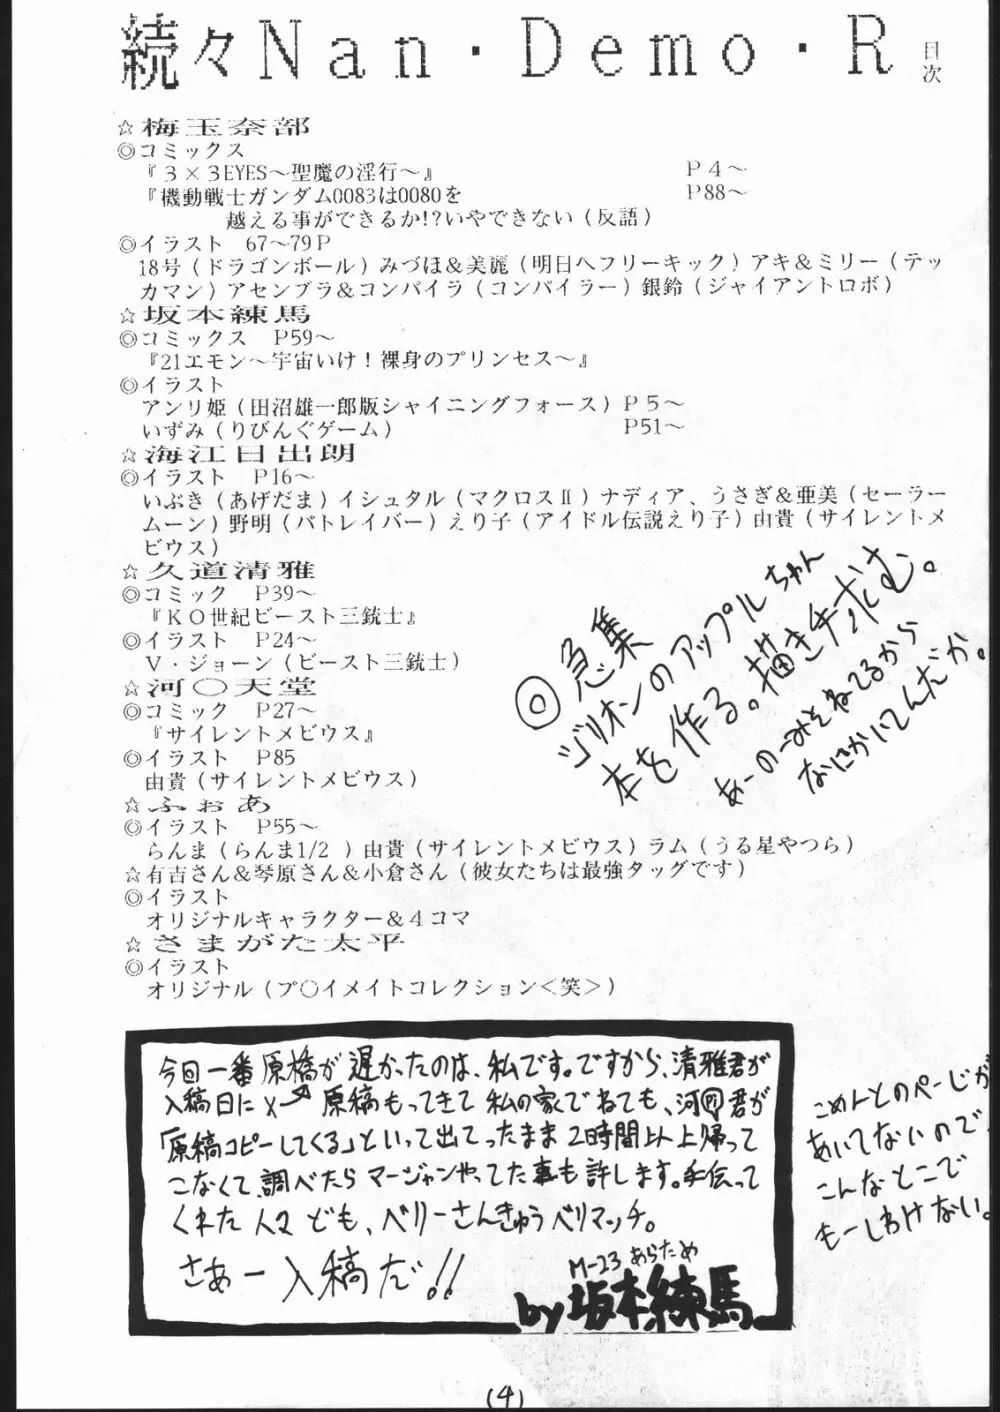 続々Nan・Demo・R 目次
☆梅玉奈部
◎コミックス
『3×3EYES～聖魔の淫行～』 P4～
『機動戦士ガンダム0083は0080を P88～
越える事ができるか!?いやできない（反語）
◎イラスト 67～79P
18号（ドラゴンボール）みづほ＆美麗（明日へフリーキック）アキ＆ミリー（テッ
カマン）アセンブラ＆コンパイラ（コンパイラー）銀鈴（ジャイアントロボ）
☆坂本練馬
◎コミックス P59～
『21エモン～宇宙いけ！裸身のプリンセス～』
◎イラスト
アンリ姫（田沼雄一郎版シャイニングフォース）P5～
いずみ（りびんぐゲーム） P51～
☆海江日出朗
◎イラスト P16～
いぶき（あげだま）イシュタル（マクロスⅡ）ナディア、うさぎ＆亜美（セーラー
ムーン）野明（パトレイバー）えり子（アイドル伝説えり子）由貴（サイレントメ
ビウス）
☆久道清雅
◎コミック P39～
『KO世紀ビースト三銃士』
◎イラスト P24～
V・ジョーン（ビースト三銃士）
☆河○天堂
◎コミック P27～
『サイレントメビウス』
◎イラスト P85
由貴（サイレントメビウス）
☆ふぉあ
◎イラスト P55～
らんま（らんま1/2 ）由貴（サイレントメビウス）ラム（うる星やつら）
☆有吉さん＆琴原さん＆小倉さん（彼女たちは最強タッグです）
◎イラスト
オリジナルキャラクター＆4コマ
☆さまがた太平
◎イラスト
オリジナル（プ○イメイトコレクション<笑>）
◎急集
ジリオンのアップルちゃん
本を作る。描き手求む。
あーのーみそねてるから
なにかいてんだか。
今回一番原橋が遅かったのは、私です。ですから、清雅君が
入稿日に 原稿もってきて私の家でねても、河㊃君が
「原稿コピーしてくる」といって出てったまま2時間以上帰って
こなくて、調べたらマージャンやってた事も許します。手伝って
くれた人々ども、ベリーさんきゅうベリマッチ。
さあー入稿だ!!
M-23あらため
by 坂本練馬
こめんとのぺーじが
あいてないので、
こんなとこで
もーしわけない。
(4)